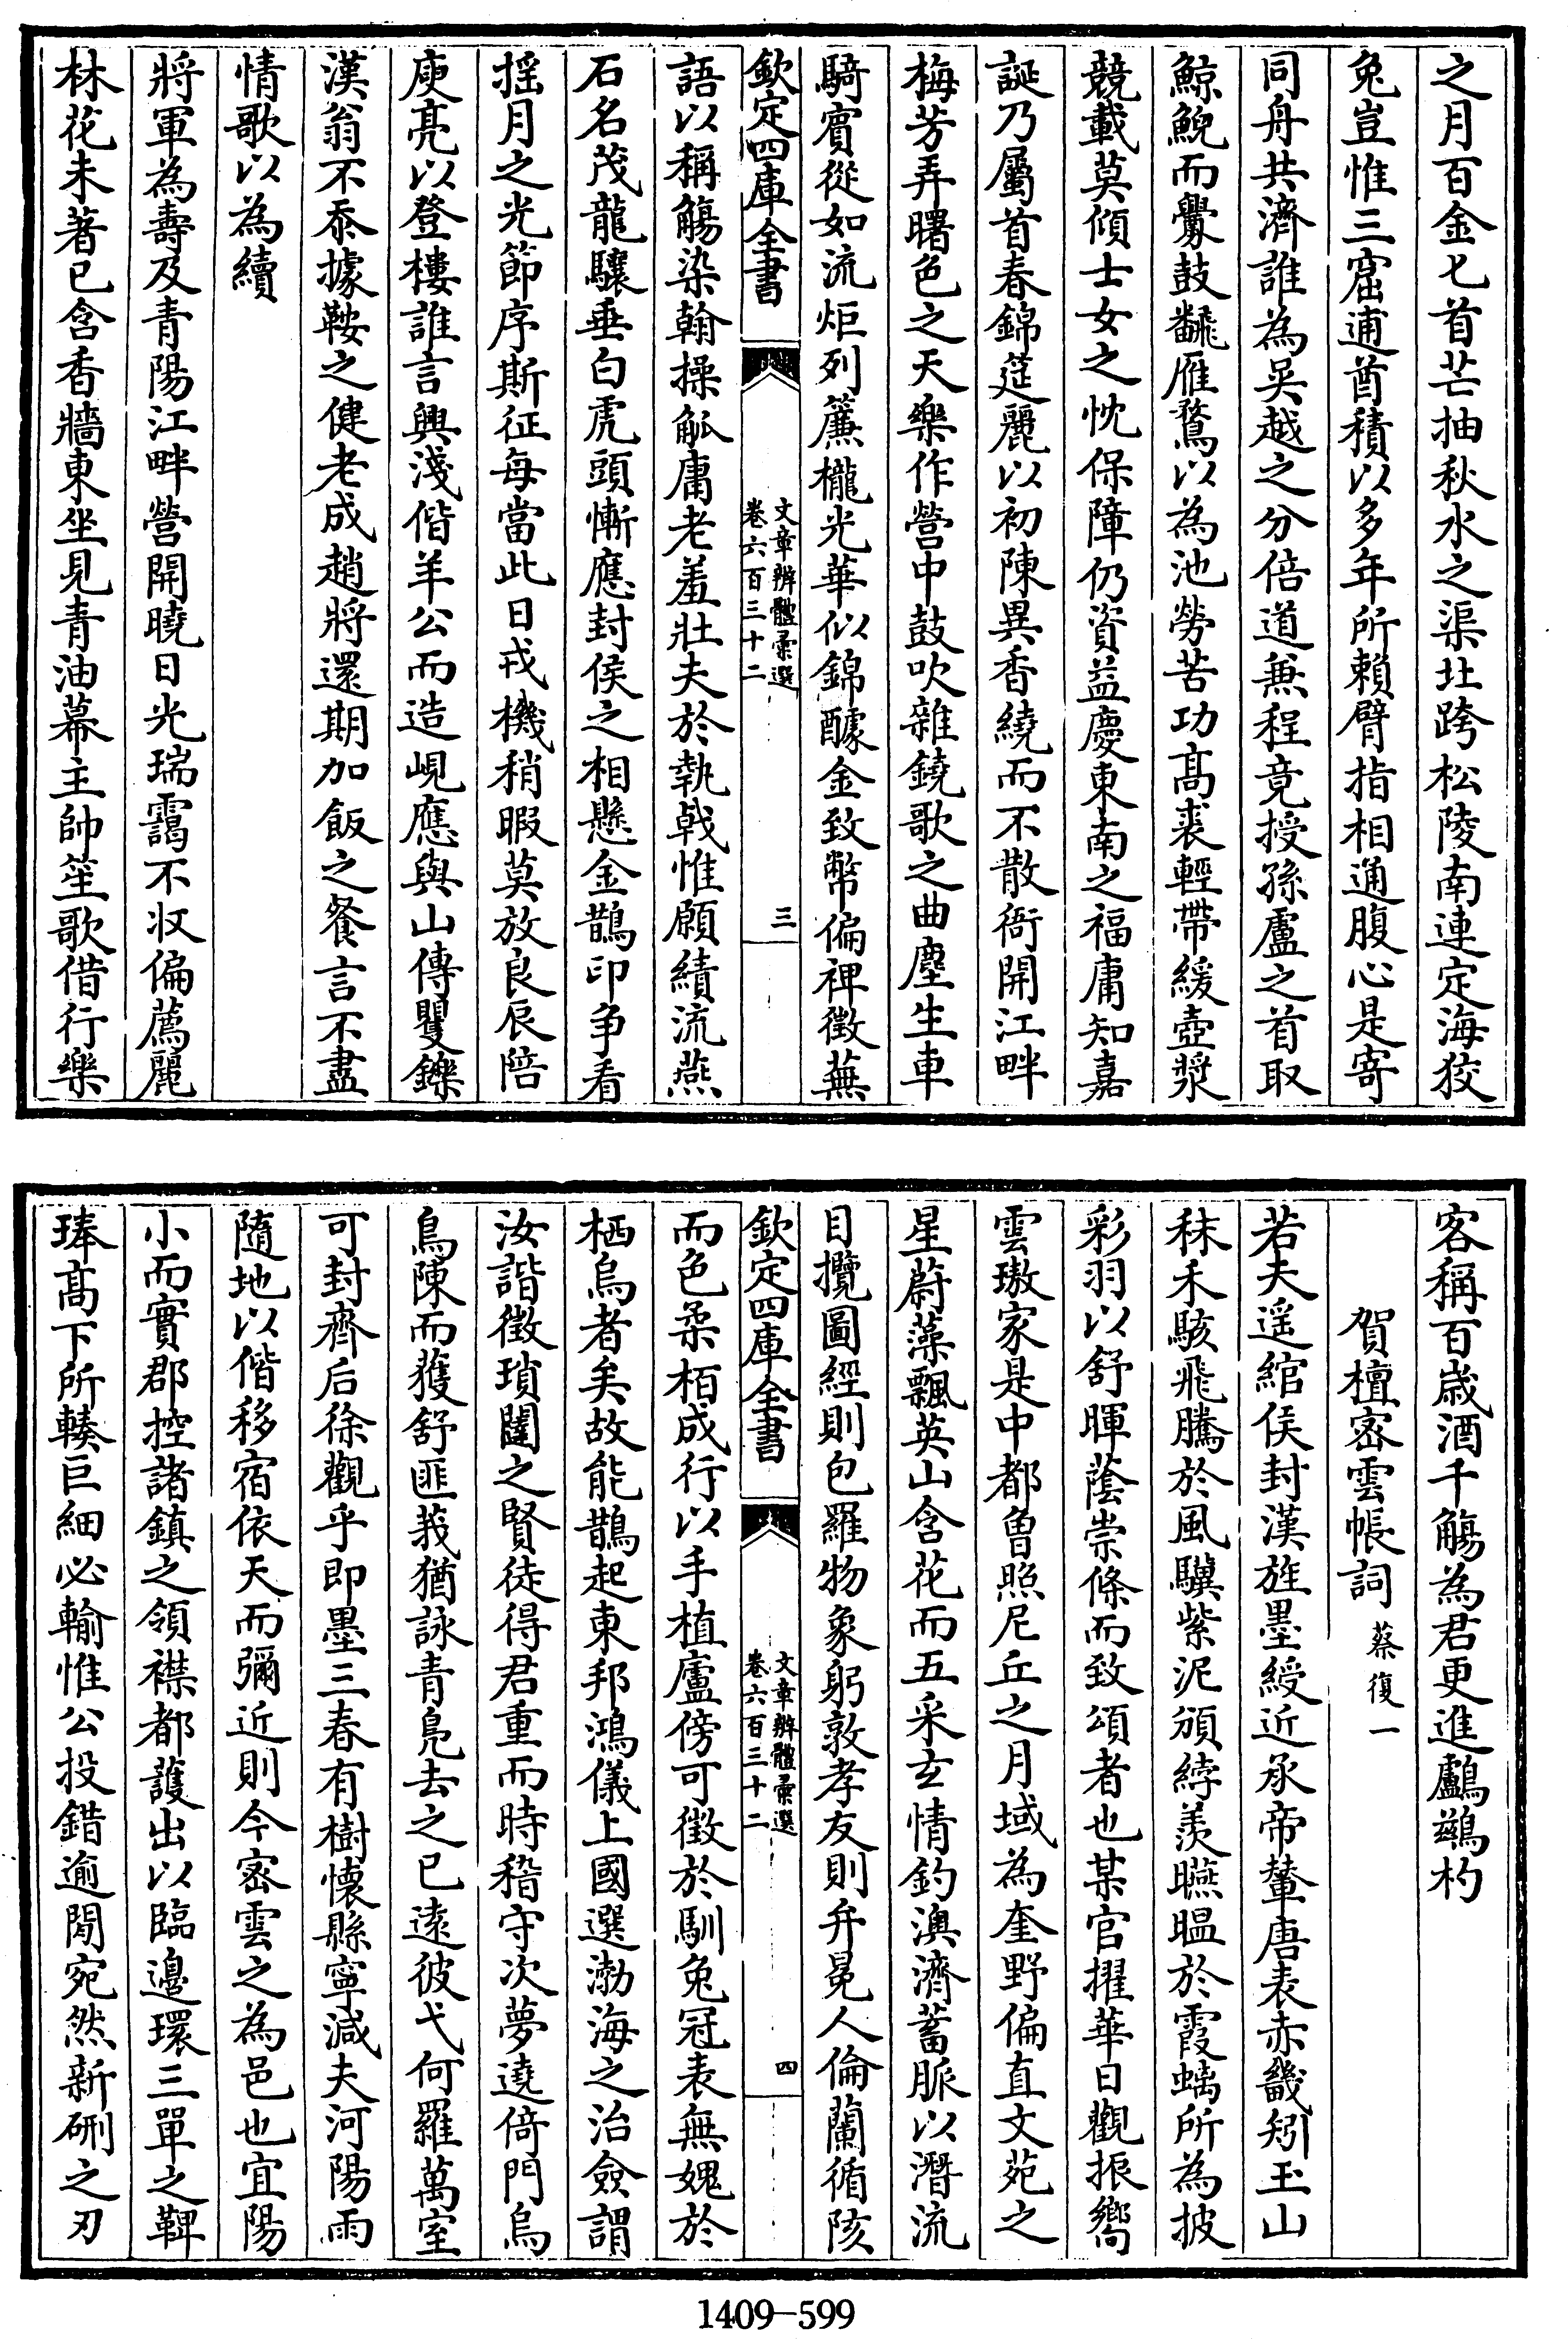 之月百金匕首芒抽秋水之渠北跨松陵南連定海狡
兔豈惟三窟逋酋積以多年所賴臂指相通腹心是寄
同舟共濟誰為吳越之分倍道兼程竟授孫盧之首取
鯨鯢而釁鼓翻雁鶩以為池勞苦功髙裘輕帶緩壺漿
競載莫傾士女之忱保障仍資益慶東南之福庸知嘉
誕乃屬首春錦筵麗以初陳異香繞而不散衙開江畔
梅芳弄曙色之天樂作營中鼓吹雜鐃歌之曲塵生車
騎賔從如流炬列簾櫳光華似錦醵金致幣偏裨徵蕪
欽定四庫全書
文章辨體彙選
卷六百三十二
三
語以稱觴染翰操觚庸老羞壯夫於執㦸惟願績流燕
石名茂龍驤垂白虎頭慚應封侯之相懸金鵲印争看
揺月之光節序斯征每當此日戎機稍暇莫放良辰陪
庾亮以登樓誰言興淺偕羊公而造峴應與山傳矍鑠
漢翁不忝據鞍之健老成趙將還期加飯之餐言不盡
情歌以為續
將軍為壽及青陽江畔營開曉日光瑞靄不收偏薦麗
林花未著已含香牆東坐見青油幕主帥笙歌借行樂
客稱百歳酒千觴為君更進鸕鷀杓
賀檀密雲帳詞 蔡復一
若夫遥綰侯封漢旌墨綬近承帝輦唐表赤畿矧玉山
秣禾駭飛騰於風驥紫泥頒綍羡曣㬈於霞螭所為披
彩羽以舒暉蔭崇條而致頌者也某官擢華日觀振嚮
雲璈家是中都魯照尼丘之月域為奎野偏直文苑之
星蔚藻飄英山含花而五采玄情釣澳濟蓄脈以潛流
目攬圖經則包羅物象躬敦孝友則弁冕人倫蘭循陔
欽定四庫全書
文章辨體彙選
卷六百三十二
四
而色柔栢成行以手植廬傍可徵於馴兔冠表無媿於
栖烏者矣故能鵲起東邦鴻儀上國選渤海之治僉謂
汝諧徵瑣闥之賢徒得君重而時稽守次夢遶倚門烏
鳥陳而獲舒匪莪猶詠青鳧去之已逺彼弋何羅萬室
可封齊后徐觀乎即墨三春有樹懷縣寜減夫河陽雨
隨地以偕移宿依天而彌近則今密雲之為邑也宜陽
小而實郡控諸鎮之領襟都䕶出以臨邉環三單之鞞
琫髙下所輳巨細必輸惟公投錯逾閒宛然新硎之刃
1409—599